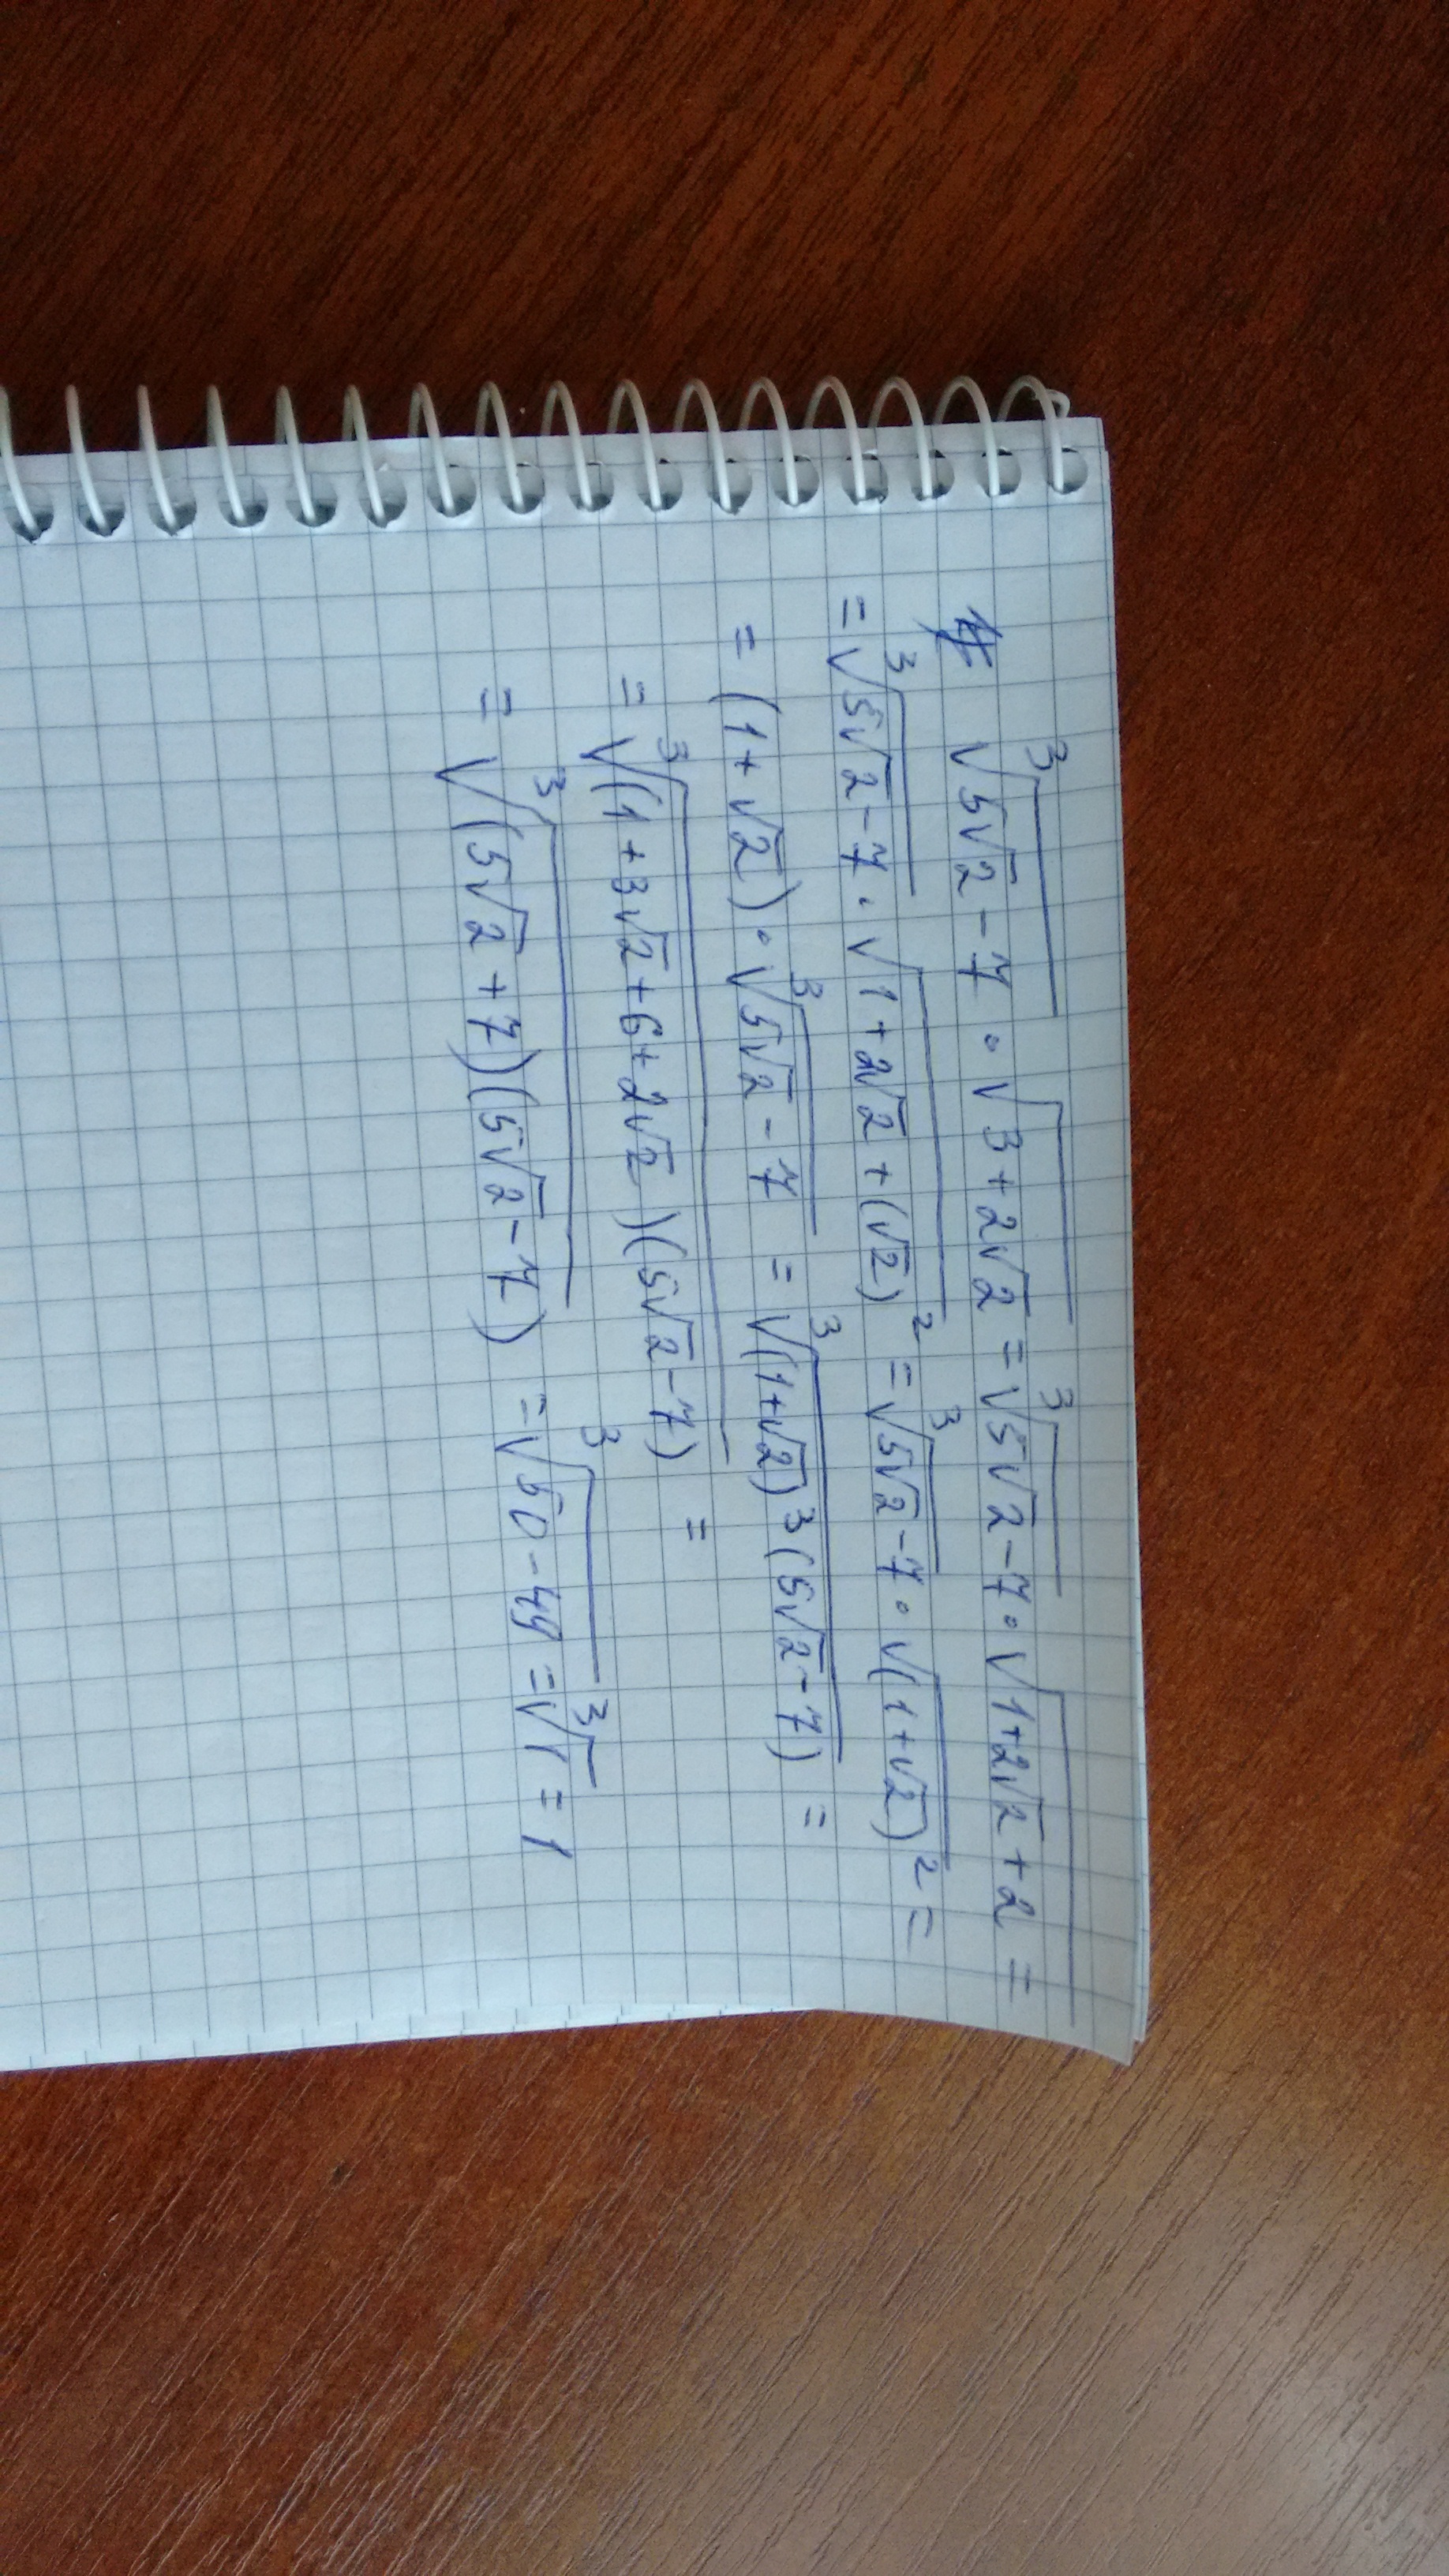 ∛(5√2 - 7) · √(3 + 2√2) = ∛(5√2 - 7) · √(1 + 2√2 + 2) =
= ∛(5√2 - 7) · √(1 + 2√2 + (√2)²) = ∛(5√2 - 7) · √((1 + √2)²) =
= (1 + √2) · ∛(5√2 - 7) = ∛((1 + √2)³(5√2 - 7)) =
= ∛((1 + 3√2 + 6 + 2√2)(5√2 - 7)) =
= ∛((5√2 + 7)(5√2 - 7)) = ∛(50 - 49) = ∛1 = 1